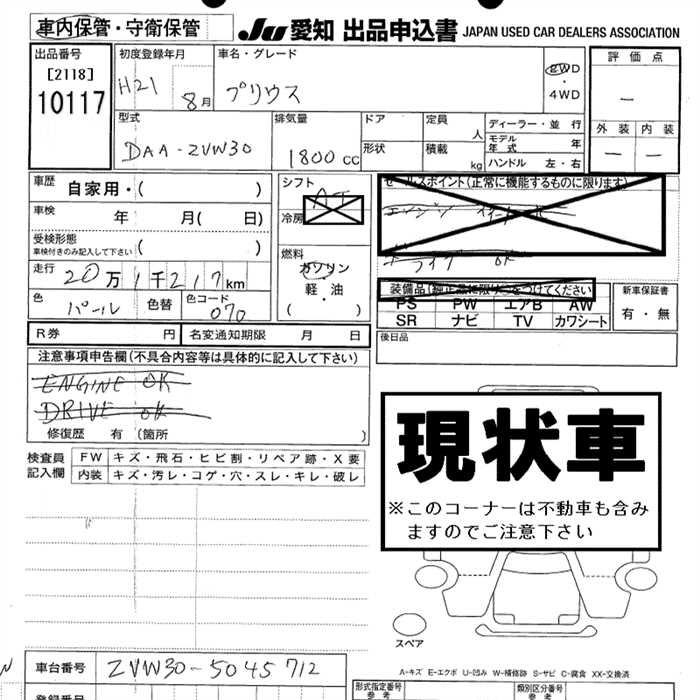 車内保管・守衛保管
JU 愛知 出品申込書 JAPAN USED CAR DEALERS ASSOCIATION
出品番号
[2118]
10117
初度登録年月
H21
8月
車名・グレード
プリウス
2WD
・
4WD
評価点
—
外装 内装
— —
型式
DAA-ZVW30
排気量
1800cc
ドア
形状
定員 人
積載 kg
ディーラー・並行
モデル年式 年
ハンドル 左・右
車歴 自家用・( )
車検 年 月( 日)
受検形態
車検付きのみ記入して下さい ( )
走行 20万1千217km
色 パール 色替 色コード 070
シフト AT
冷房
燃料
ガソリン
軽・油
( )
セールスポイント(正常に機能するものに限ります)
エンジン OK
ドライブ OK
装備品(純正品に限り○をつけてください)
PS PW エアB AW
SR ナビ TV カワシート
新車保証書
有・無
後日品
R券 円 名変通知期限 月 日
注意事項申告欄(不具合内容等は具体的に記入して下さい)
ENGINE OK
DRIVE OK
修復歴 有 (箇所 )
検査員記入欄
FW キズ・飛石・ヒビ割・リペア跡・X要
内装 キズ・汚レ・コゲ・穴・スレ・キレ・破レ
現状車
※このコーナーは不動車も含み
ますのでご注意下さい
スペア
A-キズ E-エクボ U-凹み W-補修跡 S-サビ C-腐食 XX-交換済
車台番号 ZVW30-5045712
登録番号
形式指定番号
参考
類別区分番号
参考